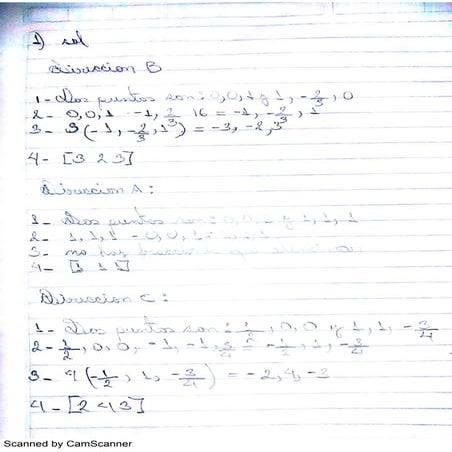 1) sol
Direccion B
1- Dos puntos son: 0,0,1 y 1, -2/3, 0
2- 0,0,1 -1, 2/3 16 = -1, -2/3, 1
3- 3(-1, -2/3, 1) = -3, -2, 3
4- [3 2 3]
Direccion A:
1- Dos puntos son: 0,0,1 y 1, 1, 1
2- 1,1,1 - 0,0,1
3- no hay
4- [1 1 1]
Direccion C:
1- Dos puntos son: 1/2, 0, 0 y 1, 1, -3/4
2- 1/2, 0, 0, -1, -1, 3/4 = -1/2, 1, -3/4
3- 4(-1/2, 1, -3/4) = -2, 4, -3
4- [2 4 3]
Scanned by CamScanner